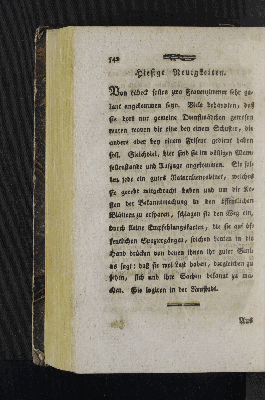 542
Hiesige Neuigkeiten.
Von Lübeck sollen zwo Frauenzimmer sehr ga-
lant angekommen seyn. Viele behaupten, daß
sie dort nur gemeine Dienstmädchen gewesen
wären wovon die eine bey einem Schuster, die
andere aber bey einem Friseur gedient haben
soll. Gleichviel, hier sind sie im völligen
und Aufzuge angekommen. Sie sol-
len jede ein gutes Naturalienkabinet, welches
sie gerebt mitgebracht haben und um die Ko-
sten der Bekanntmachung in den öffentlichen
Blättern zu ersparen, schlagen sie den Weg ein,
durch kleine Empfehlungskarten, die sie auf öf-
fentlichen Spaziergängen, solchen Leuten in die
Hand drücken von denen ihnen ihr guter Geni-
us sagt: daß sie wol Lust haben, dergleichen zu
sehen, sich und ihre Sachen bekannt zu ma-
chen. Sie logiren in der Neustadt.
Aus